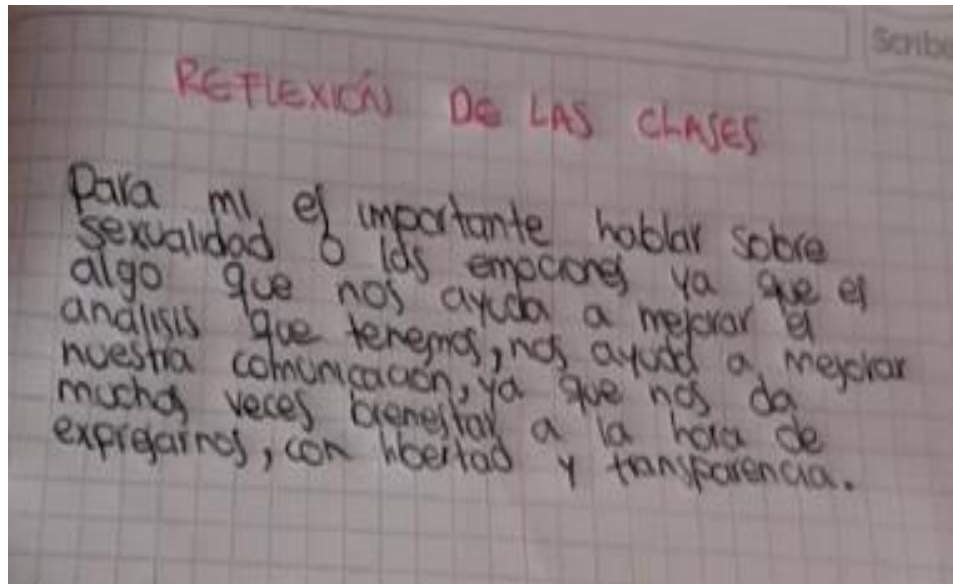 Scribe
REFLEXIÓN DE LAS CLASES
Para mi, es importante hablar sobre
sexualidad o las emociones ya que es
algo que nos ayuda a mejorar el
análisis que tenemos, nos ayuda a mejorar
nuestra comunicación, ya que nos da
muchas veces bienestar a la hora de
expresarnos, con libertad y transparencia.